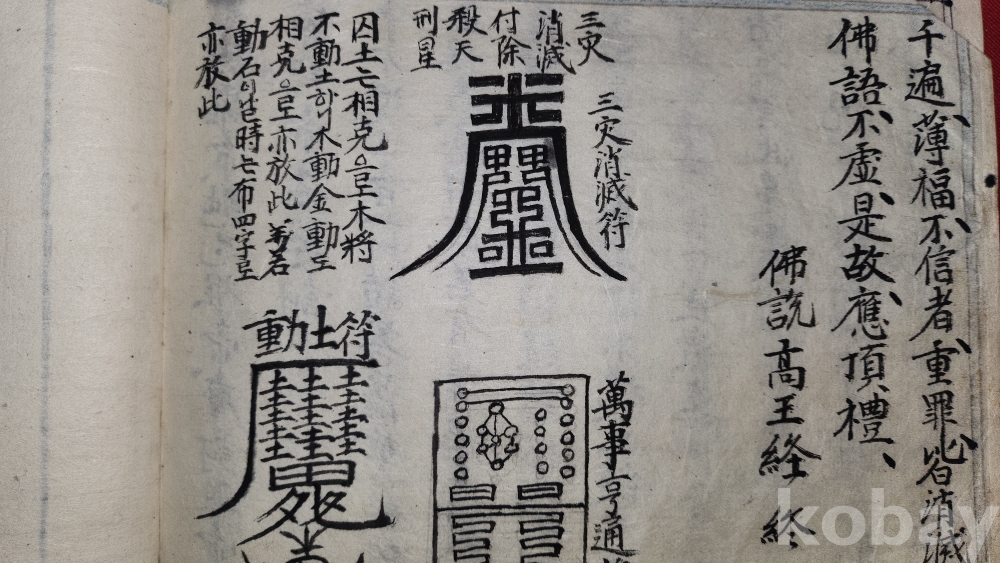 千遍、薄福不、信者、重罪皆消滅
佛語不虛、是故、應頂禮、
佛說高王経 终
三灾
消滅
付除
殺天
刑星
三灾消滅符
囚土七相克으로木將
不動土하니木動金動土
相克으로亦放此
動石이날時는布四字로
亦放此
動土符
萬事亨通
kobay